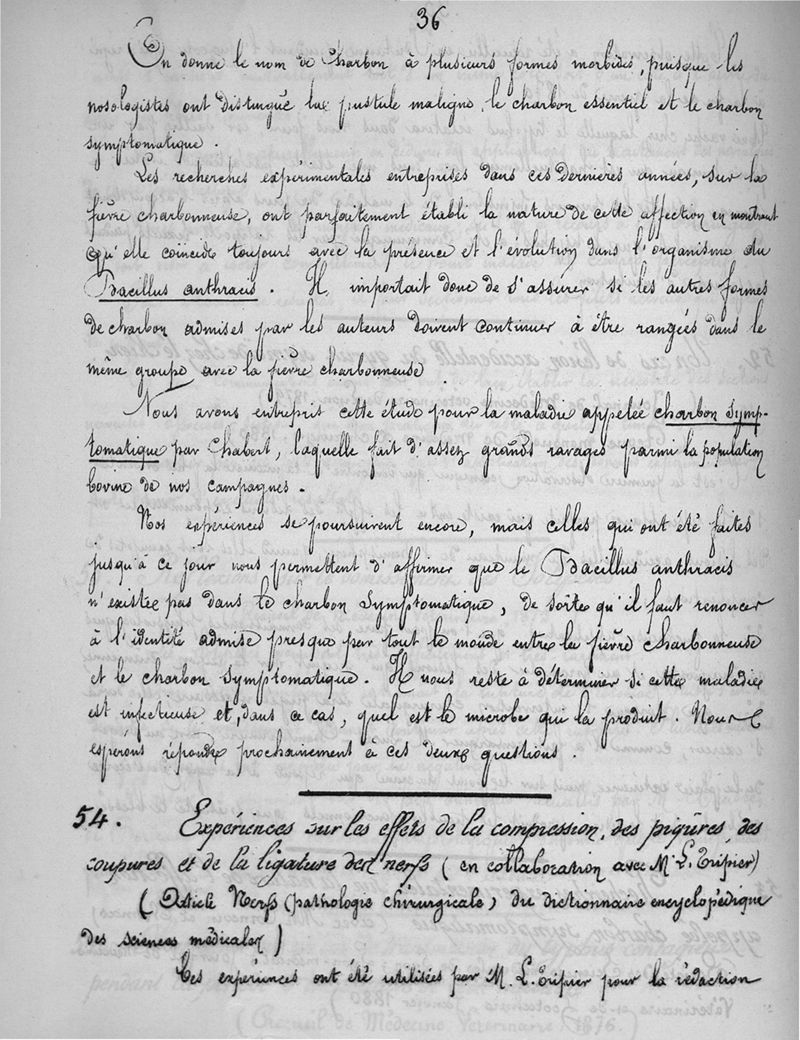 36
On donne le nom de Charbon à plusieurs formes morbides, puisque les
nosologistes ont distingué la pustule maligne, le charbon essentiel et le charbon
symptomatique.
Les recherches expérimentales entreprises dans ces dernières années, sur la
fièvre charbonneuse, ont parfaitement établi la nature de cette affection en montrant
qu'elle coïncide toujours avec la présence et l'évolution dans l'organisme du
Bacillus anthracis. Il importait donc de s'assurer si les autres formes
de charbon admises par les auteurs doivent continuer à être rangées dans le
même groupe avec la fièvre charbonneuse
Nous avons entreprit cette étude pour la maladie appelée charbon symp-
tomatique par Chabert, laquelle fait d'assez grands ravages parmi la population
bovine de nos campagnes.
Nos expériences se poursuivent encore, mais celles qui ont été faites
jusqu'à ce jour nous permettent d'affirmer que le Bacillus anthracis
n'existe pas dans le charbon symptomatique, de sorte qu'il faut renoncer
à l'identité admise presque par tout le monde entre la fièvre charbonneuse
et le charbon symptomatique. Il nous reste à déterminer si cette maladie
est infectieuse et, dans ce cas, quel est le microbe qui la produit. Nous
espérons répondre prochainement à ces deux questions.
54. Expériences sur les effets de la compression, des piqûres, des
coupures et de la ligature des nerfs (en collaboration avec M. L. Tripier)
(Article Nerfs (pathologie chirurgicale) du dictionnaire encyclopédique
des sciences médicales)
Ces expériences ont été utilisées par M. L. Tripier pour la rédaction